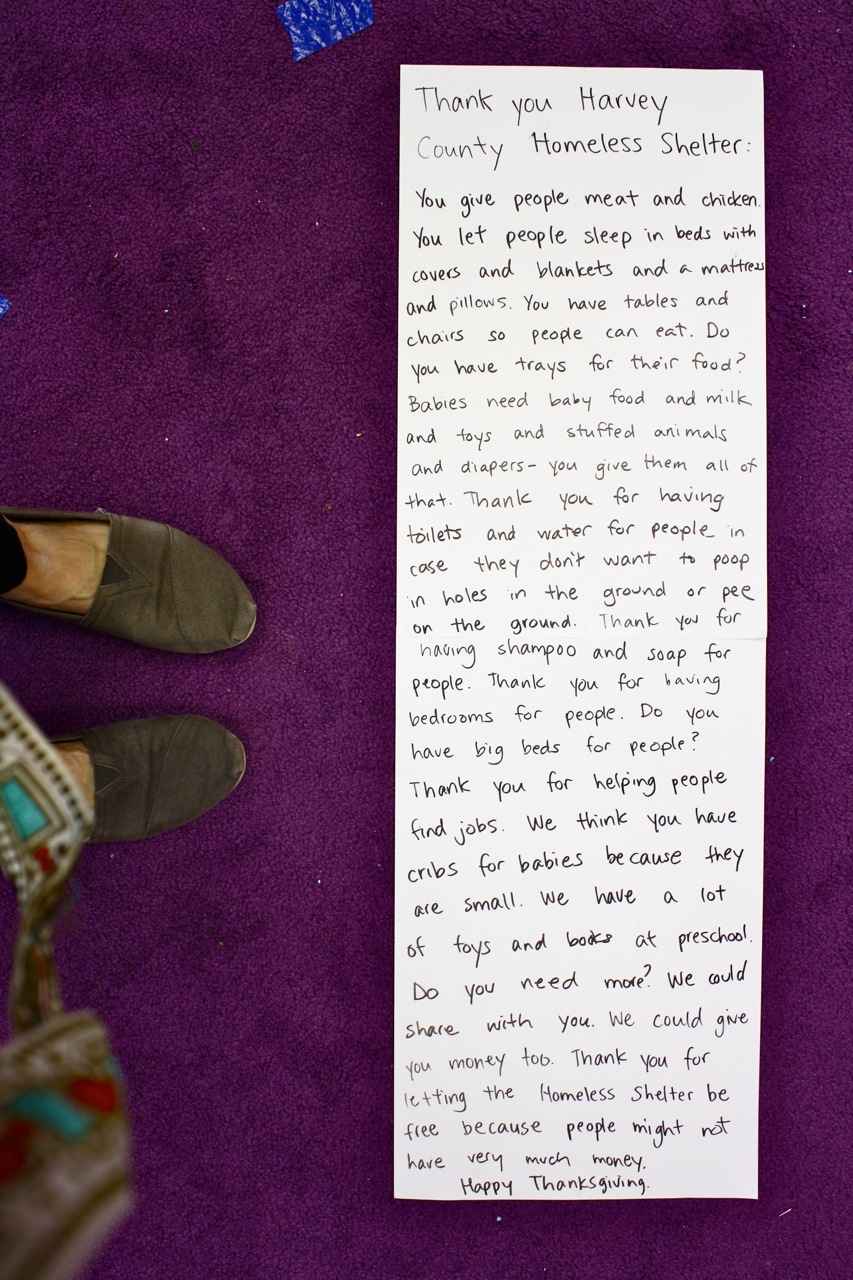 Thank you Harvey
County Homeless Shelter:
You give people meat and chicken.
You let people sleep in beds with
covers and blankets and a mattress
and pillows. You have tables and
chairs so people can eat. Do
you have trays for their food?
Babies need baby food and milk
and toys and stuffed animals
and diapers- you give them all of
that. Thank you for having
toilets and water for people in
case they don't want to poop
in holes in the ground or pee
on the ground. Thank you for
having shampoo and soap for
people. Thank you for having
bedrooms for people. Do you
have big beds for people?
Thank you for helping people
find jobs. We think you have
cribs for babies because they
are small. We have a lot
of toys and books at preschool.
Do you need more? We could
share with you. We could give
you money too. Thank you for
letting the Homeless Shelter be
free because people might not
have very much money.
Happy Thanksgiving.